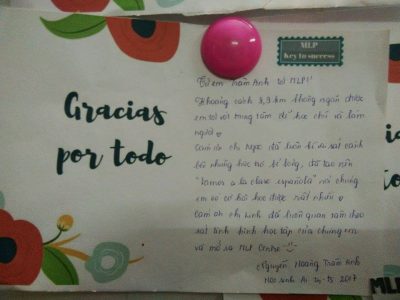 MLP
Key to success
Gracias
por todo
Từ em Trâm Anh tới MLP!
Khoảng cách 8,9 km không ngăn được
em tới với trung tâm để học chữ và làm
người
Cảm ơn chị Ngọc đã luôn bên sát cánh
bên những học trò
đã tạo nên
"Vamos a la clase española" nơi chúng
em có cơ hội học được rất nhiều
Cảm ơn chị Linh đã luôn quan tâm theo
sát tình hình học tập của chúng em
và mở ra MLP Centre
Nguyễn Hoàng Trâm Anh
Học sinh A1 2017
MLP